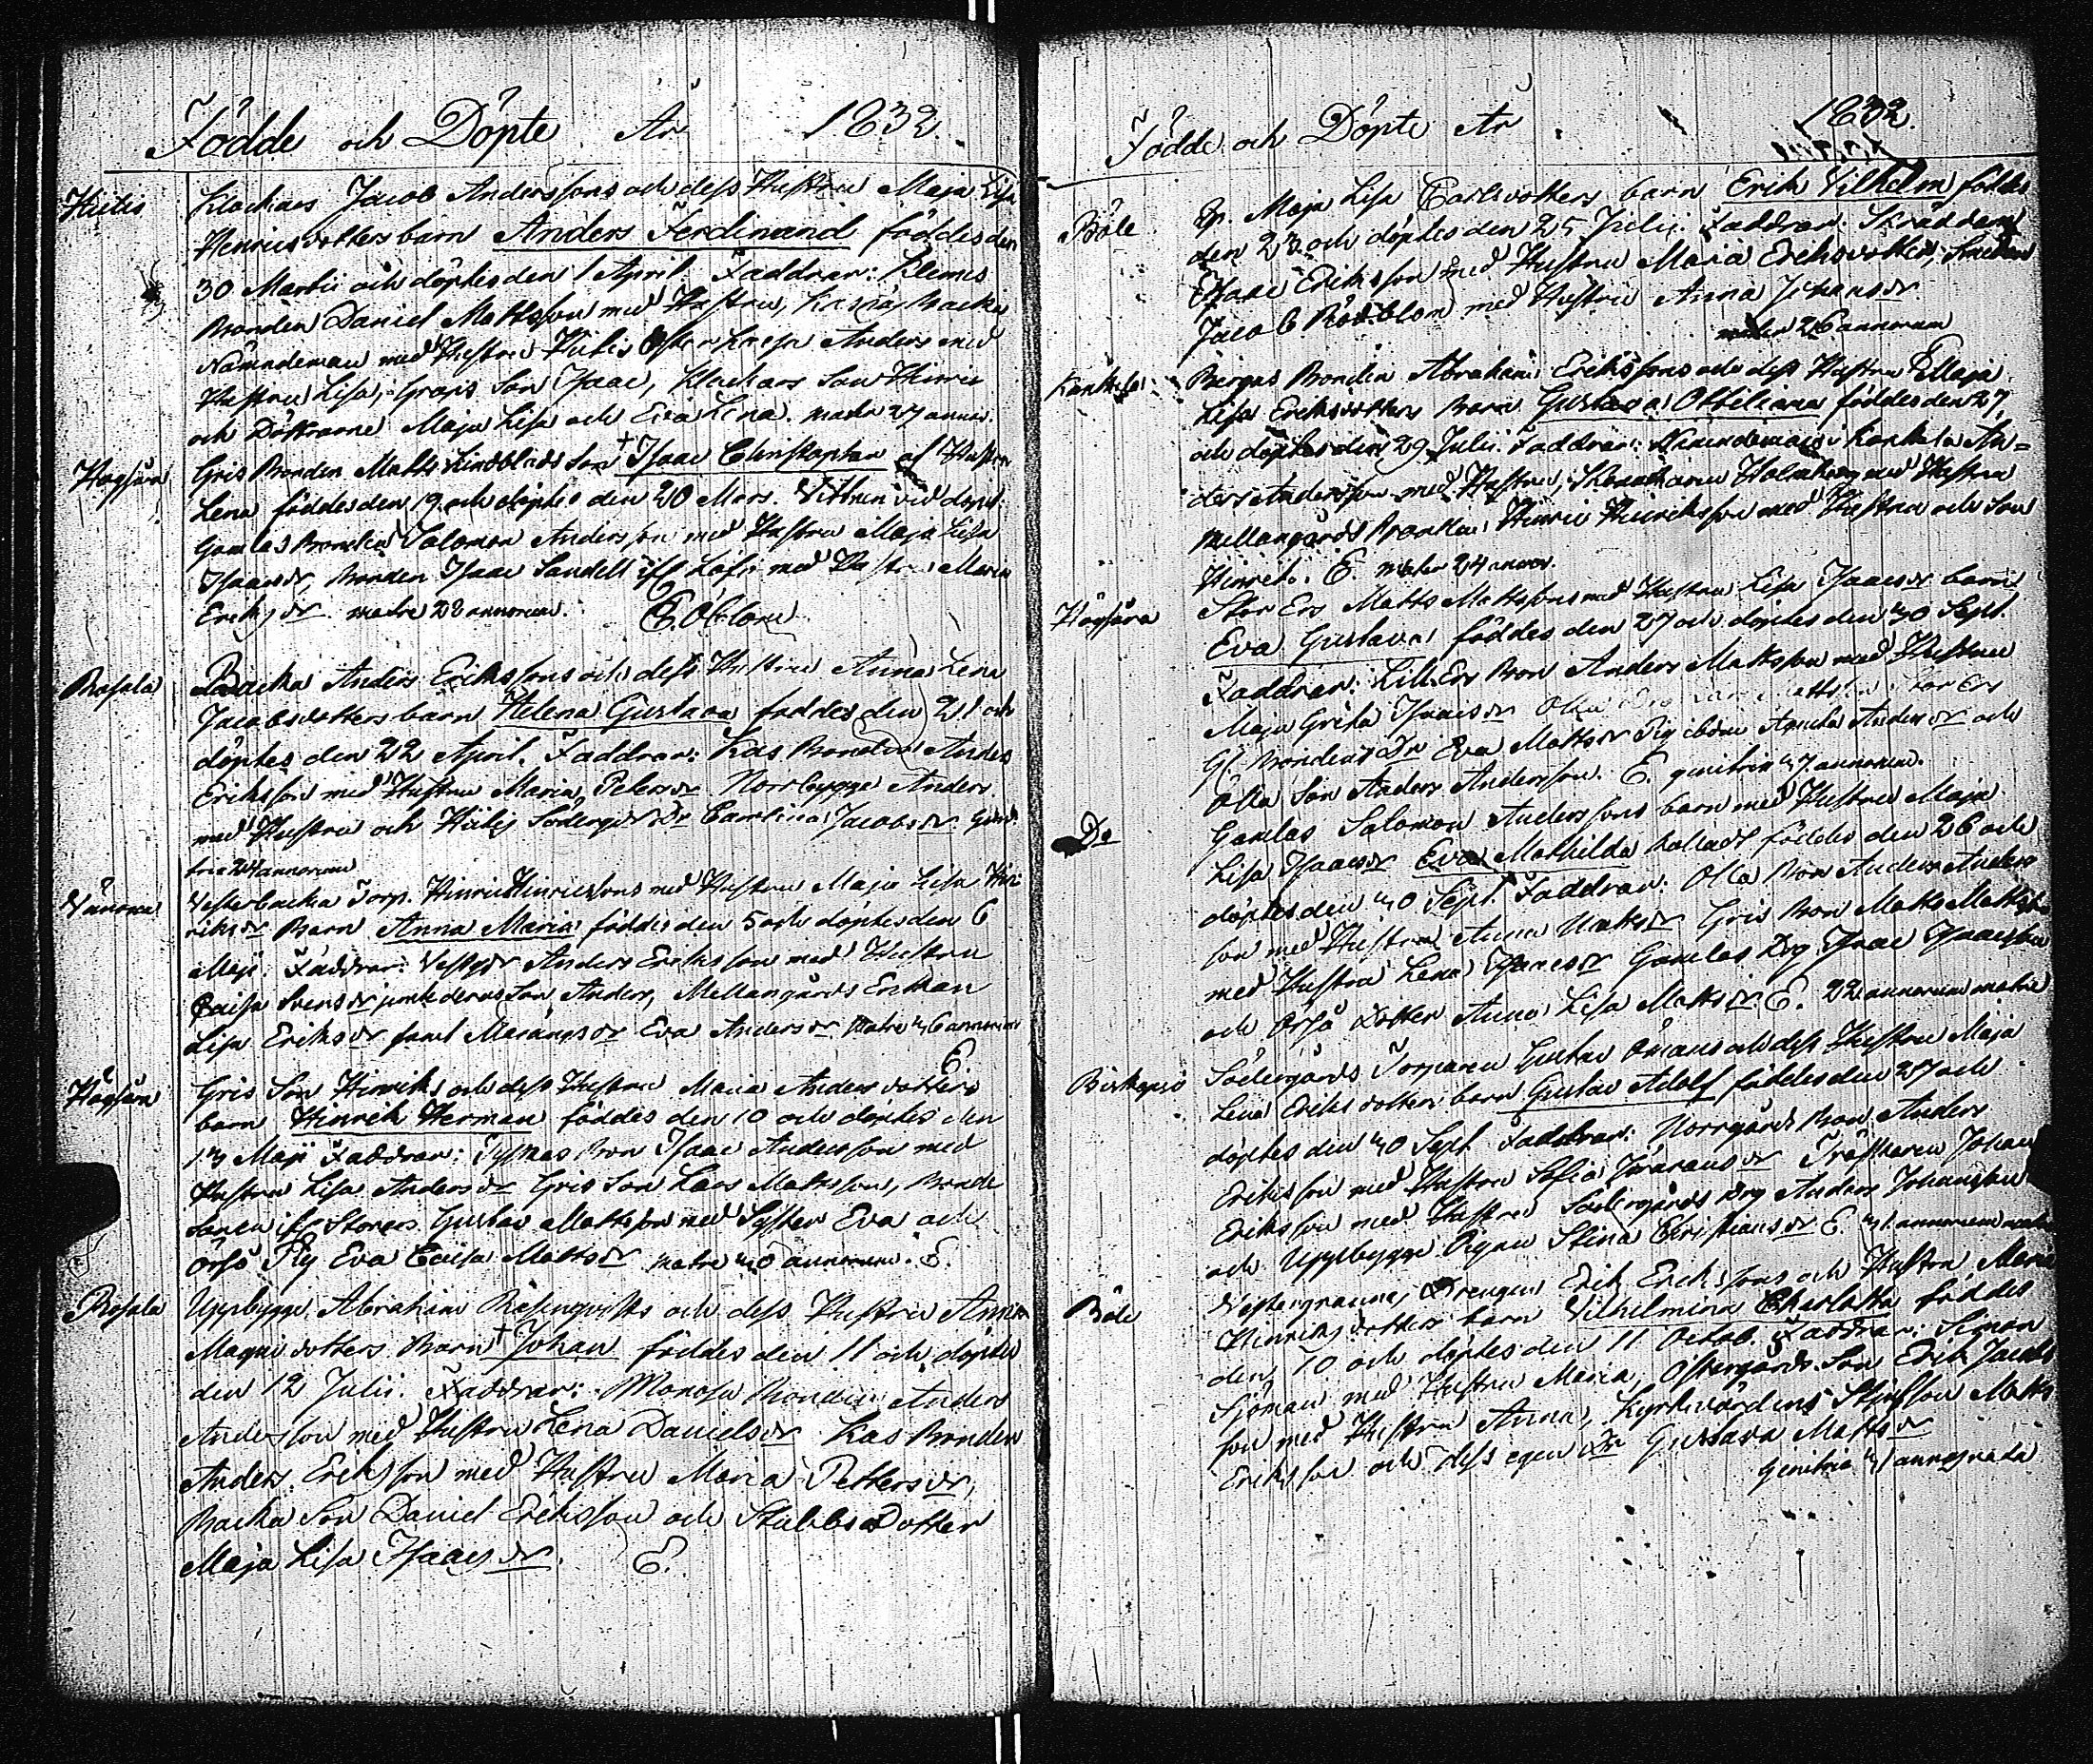 Födde och Döpte År 1832.
Hitis
Klockars Jacob Anderssons och dess Hustru Maja Lisa
Henricsdotters barn Anders Ferdinand föddes den
30 Martii och döptes den 1 April. Faddrar: Klemis
Bonden Daniel Mattsson med Hustru, Backa
Nämndeman med Hustru Hitis Anders med
Hustru Lisa, Son Isaac, Klockars Son Hinric
och Döttrarne Maja Lisa och Eva Lena. mater 27 annor.
Högsåra
Gris Bonden Matts Lindblads Son + Isaac Christopher af Hustru
Lena föddes den 19 och döptes den 20 Mars. Vittnen vid dopet:
Gamlas Bonden Salomon Andersson med Hustru Maja Lisa
Isaacsdr, Bonden Isaac Sandell ifr. Löfö med Hustru Maria
Eriksdr matre 28 annorum.
Rosala
Backa Anders Erikssons och dess Hustru Anna Lena
Jacobsdotters barn Helena Gustava föddes den 21 och
döptes den 22 April. Faddrar: Kas Bonden Anders
Eriksson med Hustru Maria Petersdr Norrbygge Anders
med Hustru och Hitis Södergårds Dr Carolina Jacobsdr. Geni-
trix 24 annorum
Vänoxa
Vesterbacka Torp. Hinric Hinricssons med Hustru Maja Lisa Hin-
riksdr Barn Anna Maria föddes den 5 och döptes den 6
Maji. Faddrar: Anders Eriksson med Hustru
Caisa Svensdr jemte deras Son Anders, Mellangårds Enkan
Lisa Eriksdr samt Eva Andersdr Matre 36 annorum
E.
Högsåra
Gris Son Hinriks och dess Hustru Maria Andersdotters
barn Hinrik Herman föddes den 10 och döptes den
13 Maji Faddrar: Tyskas Bon Isaac Andersson med
Hustru Lisa Andersdr Gris Son Lars Mattsson, Bonde
sonen ifr Storers Gustav Mattsson med Syster Eva och
Örsö Pig Eva Caisa Mattsdr matre 30 annorum. E.
Rosala
Uppbygge Abraham Rosenqvists och dess Hustru Anna
Magnidotters Barn + Johan föddes den 11 och döptes
den 12 Julii. Faddrar: Monosa Bonden Anders
Andersson med Hustru Lena Danielsdr Kas Bonden
Anders Eriksson med Hustru Maria Pettersdr,
Backa Son Daniel Eriksson och Stubbs Dotter
Maja Lisa Isaacsdr. E.
Födde och Döpte År 1832.
Böle
Maja Lisa Carlsdotters barn Erik Vilhelm föddes
den 23 och döptes den 25 Julii. Faddrar: Skräddaren
Isaac Eriksson med Hustru Maria Eriksdotter, Smeden
Jacob Rödblom med Hustru Anna Johansdr
mater 26 annorum
Kankila
Bergas Bonden Abraham Erikssons och dess Hustru Maja
Lisa Eriksdotters Barn Gustava Ottiliana föddes den 27
och döptes den 29 Julii. Faddrar: Nämndeman i Kankila An=
ders Andersson med Hustru, Holmberg med Hustru
Mellangårds Bonden Hinric Hinriksson med Hustru och Son
Hinrik. E. mater 24 annor.
Högsåra
Stor Ers Matts Mattssons med Hustru Lisa Isaacsdr barn
Eva Gustava föddes den 27 och döptes den 30 Sept.
Faddrar: Lill Ers Bon Anders Mattsson med Hustru
Maja Greta Isaacsdr Olla Stor Ers
Gl. Bondens Dr Eva Mattsdr Pig Andersdr och
Olla Son Anders Andersson. E. genitrix 37 annorum.
Do
Gamlas Salomon Anderssons barn med Hustru Maja
Lisa Isaacsdr Eva Mathilda kalladt föddes den 26 och
döptes den 30 Sept. Faddrar: Olla Bon Anders Anders
son med Hustru Anna Mattsdr Gris Bon Matts Mattsson
med Hustru Lena Isaacsdr Gamlas Drg Isaac Isaacsson
och Örsö Dotter Anna Lisa Mattsdr. E. 22 annorum matre
Biskopsö
Södergårds Torparen Gustav Ömans och dess Hustru Maja
Lena Eriksdotters barn Gustav Adolf föddes den 27 och
döptes den 30 Sept. Faddrar: Norrgårds Bon Anders
Eriksson med Hustru Sofia Träskaren Johan
Eriksson med Hustru Södergårds Drg Anders Johansson
och Uppbygge Pigan Stina Christiansdr E. 31 annorum matre
Böle
Drengen Erik Erikssons och Hustru Maria
Hinriksdotters barn Vilhelmina Charlotta föddes
den 10 och döptes den 11 Octob. Faddrar: Simon
Sjöman med Hustru Maria, Östergårds Son Erik Jacobs
son med Hustru Anna, Kyrkvärdens Matts
Eriksson och dess egen Dr Gustava Mattsdr
Genitrix 31 annos nata